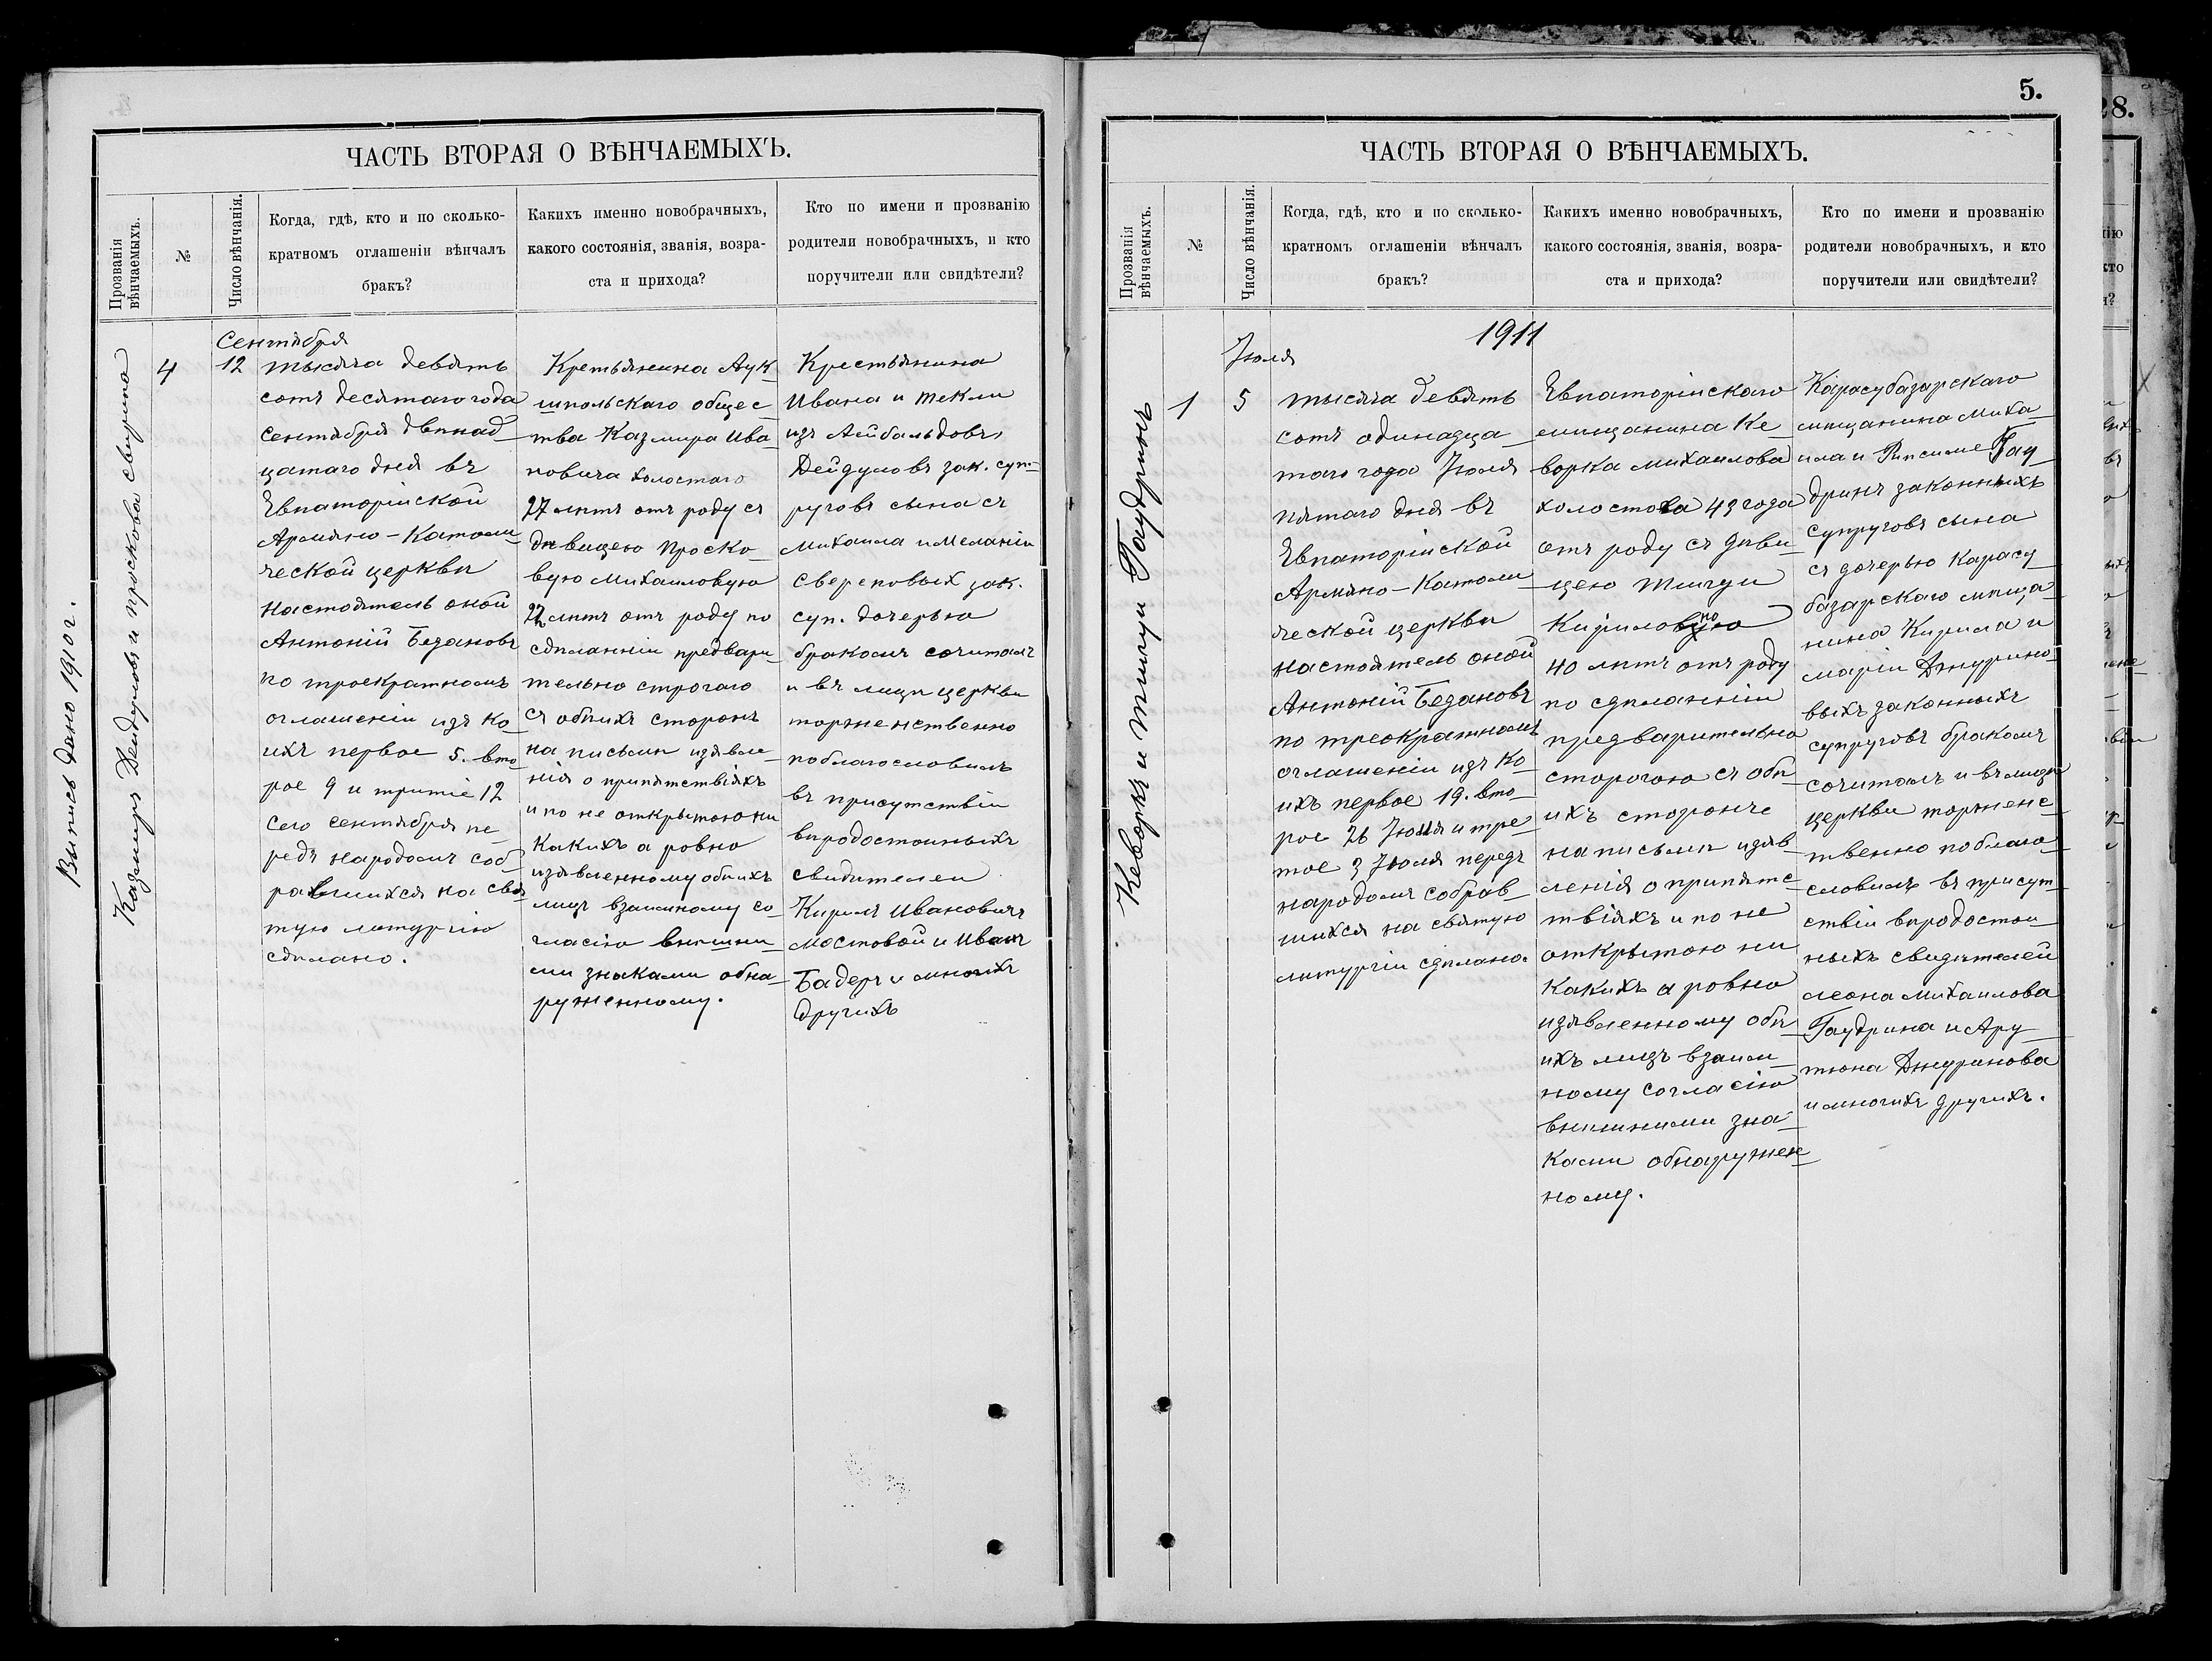 ЧАСТЬ ВТОРАЯ О ВѢНЧАЕМЫХЪ.
Прозванія вѣнчаемыхъ.
№
Число вѣнчанія.
Когда, гдѣ, кто и по сколько-
кратномъ оглашеніи вѣнчалъ
бракъ?
Какихъ именно новобрачныхъ,
какого состоянія, званія, возра-
ста и прихода?
Кто по имени и прозванію
родители новобрачныхъ, и кто
поручители или свидѣтели?
Выпись дано 1910 г.
Казмиръ Дейдуловъ и просковa
4
Сентября
12
тысяча девять
сотъ десятаго года
сентября двѣнад
цатаго дня въ
Евпаторійской
Армяно-Католи
ческой церкви
Настоятель оной
Антоній Безановъ
по троекратномъ
оглашеніи изъ ко
ихъ первое 5. вто
рое 9 и тритіе 12
сего сентября пе
редъ народомъ соб
равшихся на свя
тую литургію
сдѣлано.
общес
тва Казмира Ива
новича холостаго
27 лѣтъ отъ роду съ
дѣвицею Проско
вую Михаиловую
22 лѣтъ отъ роду по
сдѣланніи предвари
тельно строгаго
съ обѣихъ сторонъ
на письмѣ изявле
нія о припятствіяхъ
и по не открытою ни
какихъ а ровно
изявленному обѣихъ
лицъ взаимному со
гласію внѣшни
ми знаками обна
руженному.
Крестьянина
Ивана и текли
изъ
Дейдуловъ зак. суп
руговъ сына съ
Михаила и Меланіи
зак.
суп. дочерью
бракомъ сочиталъ
и въ лицѣ церкви
торженственно
поблагословилъ
въ присутствіи
вѣродостоиныхъ
свидителеи
Кирилъ Ивановичъ
Мостовой и Иванъ
Бадеръ и многихъ
другихъ
5.
ЧАСТЬ ВТОРАЯ О ВѢНЧАЕМЫХЪ.
Прозванія вѣнчаемыхъ.
№
Число вѣнчанія.
Когда, гдѣ, кто и по сколько-
кратномъ оглашеніи вѣнчалъ
бракъ?
Какихъ именно новобрачныхъ,
какого состоянія, званія, возра-
ста и прихода?
Кто по имени и прозванію
родители новобрачныхъ, и кто
поручители или свидѣтели?
1911
Кеворкъ и Гаудринъ
1
Іюля
5
тысяча девять
сотъ одинадца
таго года Іюля
пятаго дня въ
Евпаторійской
Армяно-Католи
ческой церкви
настоятель оной
Антоній Безановъ
по треократномъ
оглашеніи изъ ко
ихъ первое 19. вто
рое 26 Іюня и тре
тое 3 Іюля передъ
народомъ собрав
шихся на святую
литургіи сдѣлано.
Евпаторійскаго
мищанина Ке
ворка михаилова
холостова 43 года
отъ роду съ дѣви
цею
40 лѣтъ отъ роду
по сдѣланніи
предварительно
сторогою съ обѣ
ихъ сторонче
на письмѣ изяв
ленія о припятс
твіяхъ и по не
открытою ни
какихъ а ровно
изявленному обѣ
ихъ лицъ взаим
ному согласію
внѣшними зна
ками обнаружен
ному.
Карасубазарскаго
мищанина миха
ила и Рипсиме Гау
дринъ законныхъ
супруговъ сына
съ дочерью Карасу
базарскаго мѣща
нина Кирила и
маріи Джурино
выхъ законныхъ
супруговъ бракомъ
сочиталъ и въ лицѣ
церкви торженс
твенно поблаго
словилъ въ присут
ствіи вѣродостои
ныхъ свидѣтелей
леона михаилова
Гаудрина и Ару
тюна Джуринова
и многихъ другихъ.
28.